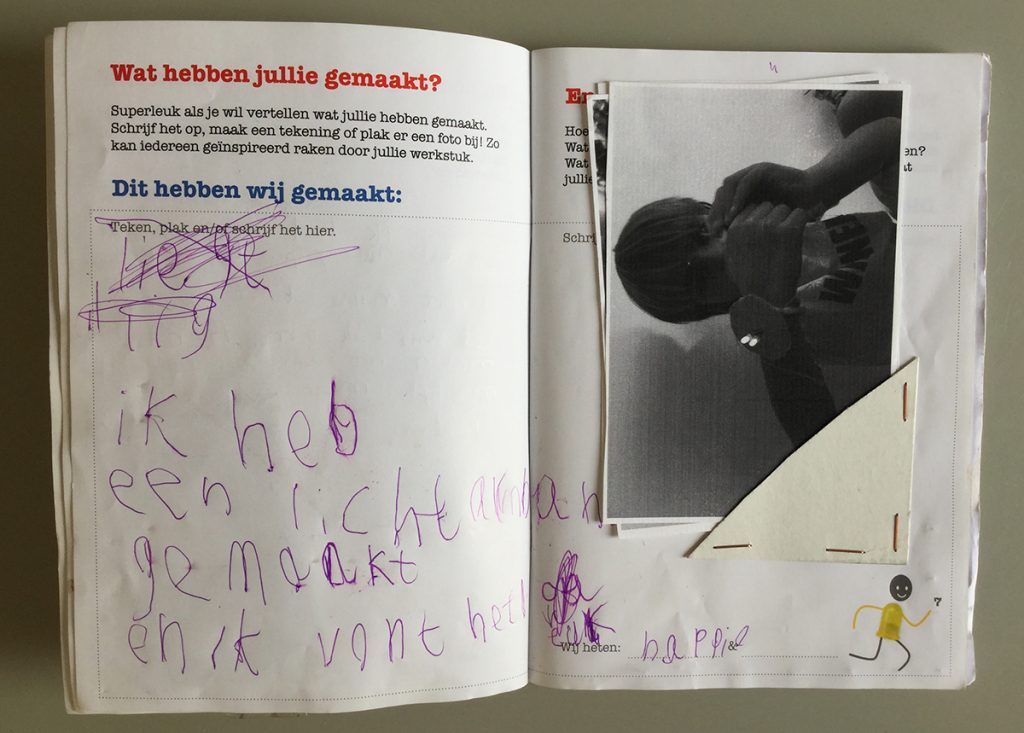 Wat hebben jullie gemaakt?
Superleuk als je wil vertellen wat jullie hebben gemaakt.
Schrijf het op, maak een tekening of plak er een foto bij! Zo
kan iedereen geïnspireerd raken door jullie werkstuk.
Dit hebben wij gemaakt:
Teken, plak en/of schrijf het hier.
ik heb
een licht
gemaakt
en ik vont het
En
Hoe
Wat
Wat
jullie
en?
at
Schrij
MINEM
7
Wij heten: happie &